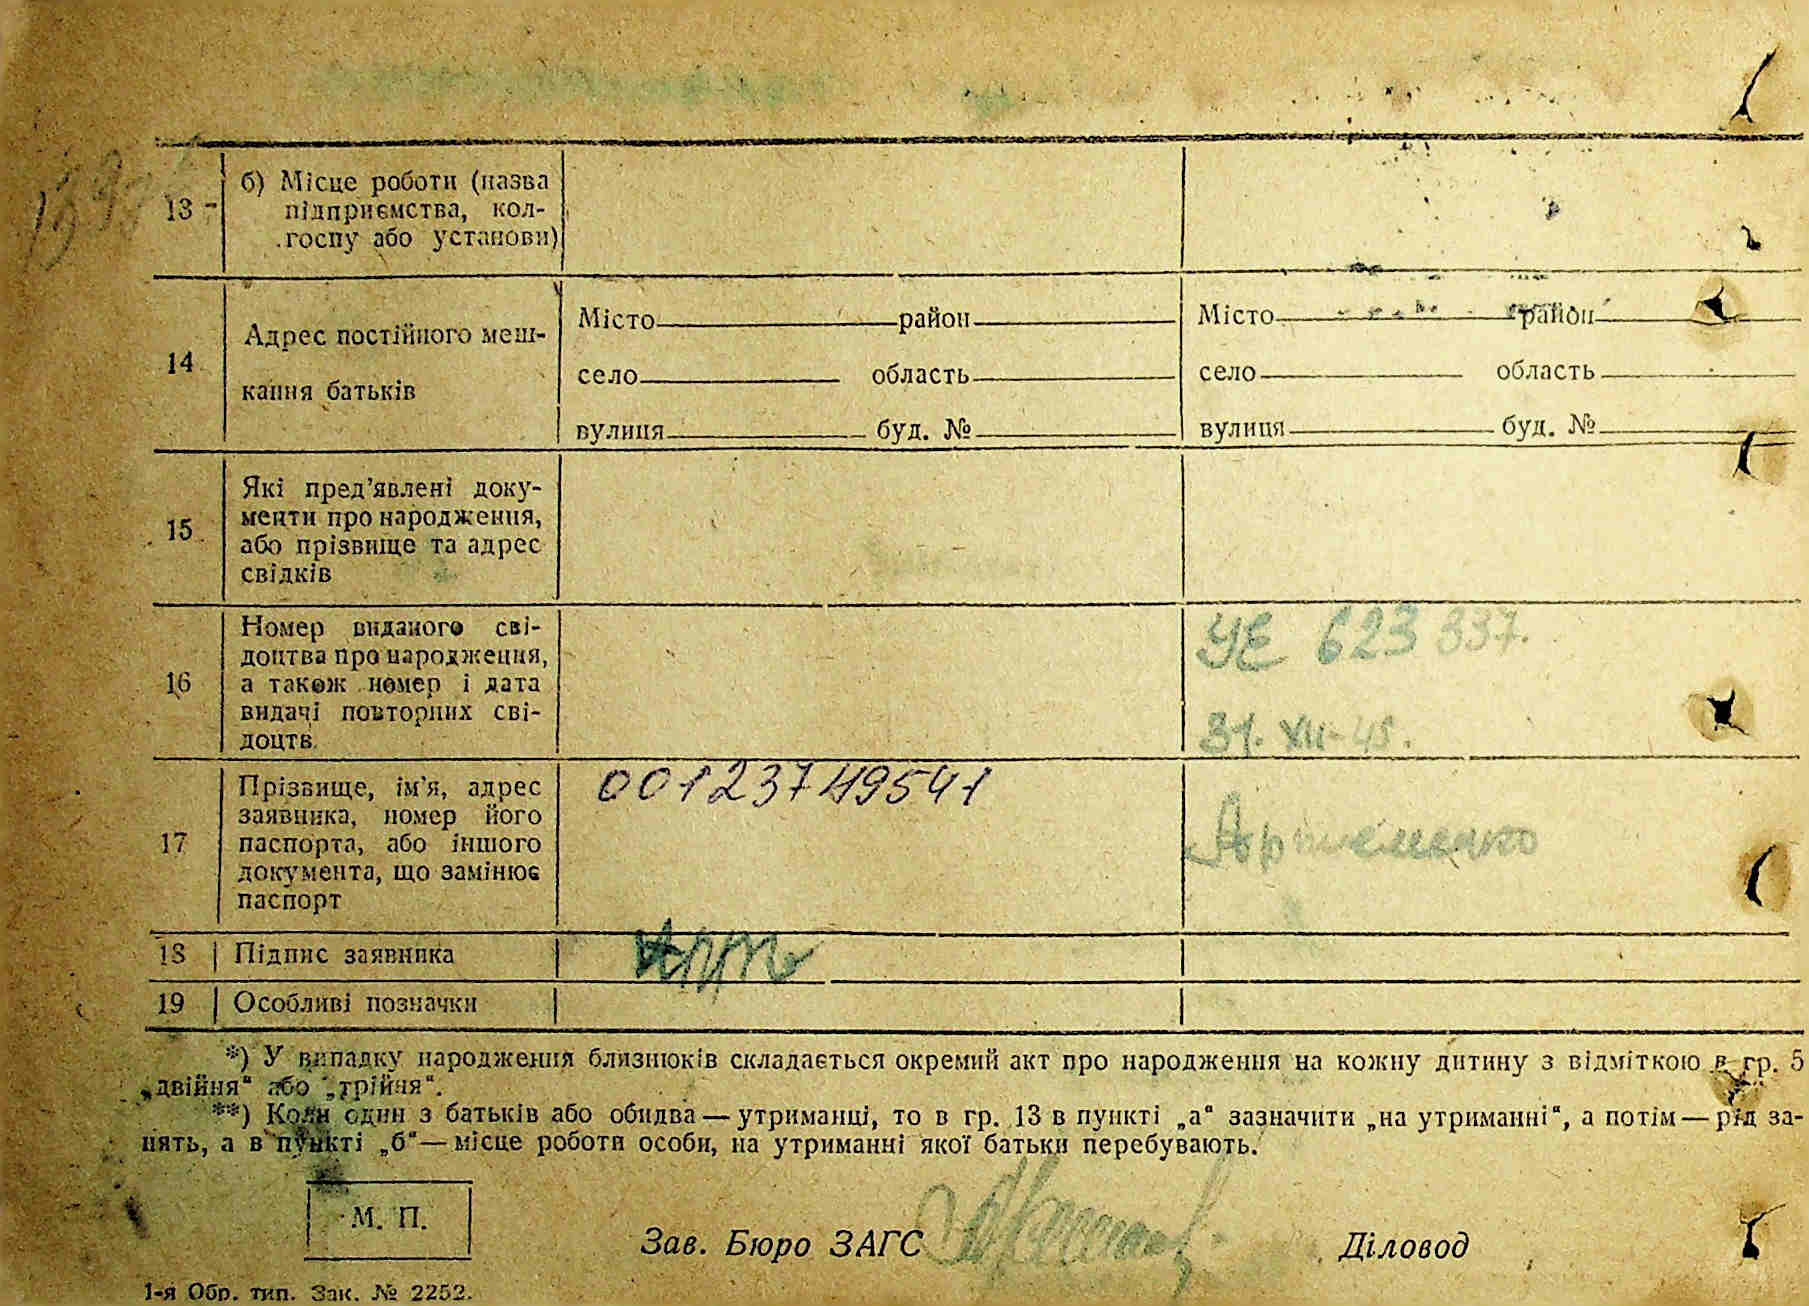 13
б) Місце роботи (назва
підприємства, кол-
госпу або установи)
14
Адрес постійного меш-
кання батьків
Місто район
село область
вулиця буд. №
Місто район
село область
вулиця буд. №
15
Які пред’явлені доку-
менти про народження,
або прізвище та адрес
свідків
16
Номер виданого сві-
доцтва про народження,
а також номер і дата
видачі повторних сві-
доцтв.
УЄ 623 337.
31. XII-45.
17
Прізвище, ім’я, адрес
заявника, номер його
паспорта, або іншого
документа, що замінює
паспорт
00123749541
Артеменко
18 Підпис заявника
19 Особливі позначки
*) У випадку народження близнюків складається окремий акт про народження на кожну дитину з відміткою в гр. 5
„двійня“ або „трійня“.
**) Коли один з батьків або обидва — утриманці, то в гр. 13 в пункті „а“ зазначити „на утриманні“, а потім — рід за-
нять, а в пункті „б“ — місце роботи особи, на утриманні якої батьки перебувають.
М. П.
Зав. Бюро ЗАГС
Діловод
1-я Обр. тип. Зак. № 2252.